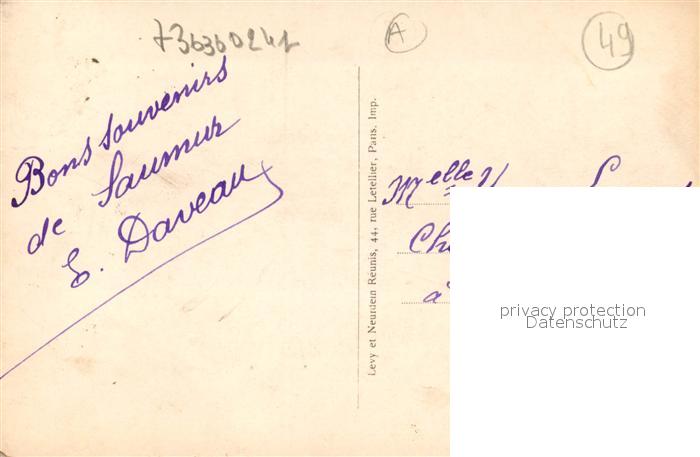 73636024L
A
49
Bons souvenirs
de Saumur
E. Daveau
Levy et Neurdein Réunis, 44, rue Letellier, Paris, Imp.
Melle
à
privacy protection
Datenschutz